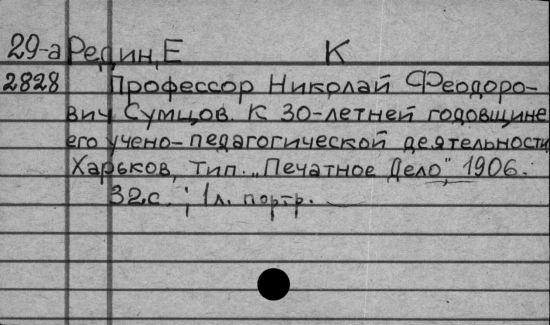 29-а Редин, Е К
2828 Профессор Николай Феодоро-
вич Сумцов. К 30-летней годовщине
его учено-педагогической деятельности
Харьков, тип. „Печатное Дело", 1906.
32с.; 1л. портр.